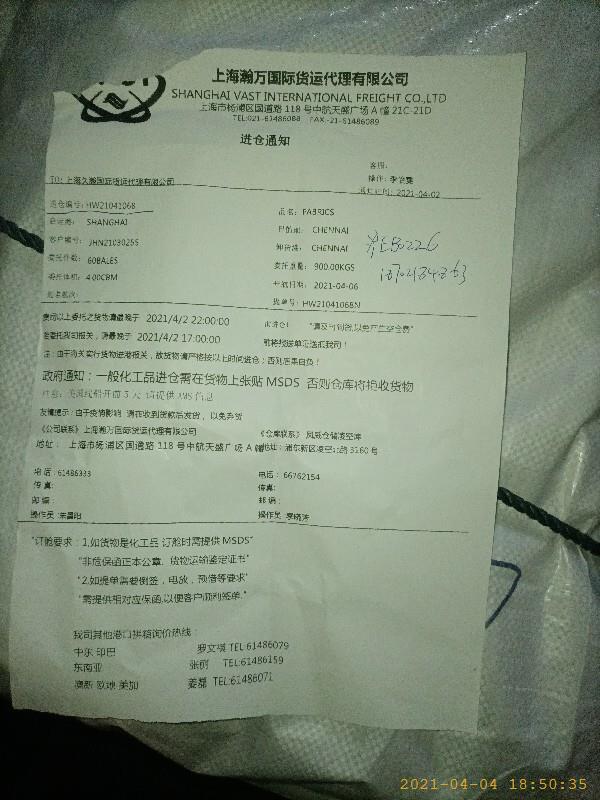 上海瀚万国际货运代理有限公司
SHANGHAI VAST INTERNATIONAL FREIGHT CO.,LTD
上海市杨浦区国道路 118 号中航天盛广场 A 幢 21C-21D
TEL:021-61486088 FAX:-21-61486089
进仓通知
客服:
TO: 上海久瀚国际货运代理有限公司
操作:
2021-04-02
进仓编号: HW21041068
品名: FABRICS
SHANGHAI
CHENNAI
客户编号: JHN2103025S
卸货港: CHENNAI
委托件数: 60BALES
委托重量: 900.00KGS
委托体积: 4.00CBM
开航日期: 2021-04-06
船名航次:
提单号: HW21041068N
EB0226
请贵司以上委托之货物请最晚于 2021/4/2 22:00:00
如委托我司报关，请最晚于 2021/4/2 17:00:00
请将报送单寄送抵我司!
注: 由于海关实行货物进港报关，故货物请严格按以上时间进仓; 否则后果自负!
政府通知: 一般化工品进仓需在货物上张贴 MSDS 否则仓库将拒收货物
友情提示: 由于疫情影响 请在收到货款后发货，以免弃货
《公司联系》上海瀚万国际货运代理有限公司
《仓库联系》凤威仓储凌空库
地址: 上海市杨浦区国道路 118 号中航天盛广场 A 幢
地址: 浦东新区凌空北路 3160 号
电话: 61486333
电话: 66762154
传真:
传真:
邮编:
邮编:
操作员
操作员
"订舱要求: 1.如货物是化工品 订舱时需提供 MSDS"
"非危保函正本公章. 货物运输鉴定证书"
"2.如提单需要倒签，电放，预借等要求"
"需提供相对应保函.以便客户顺利签单."
我司其他港口拼箱询价热线:
中东 印巴 罗文祺 TEL:61486079
东南亚 张 TEL:61486159
澳新 欧地 美加 姜磊 TEL:61486071
2021-04-04 18:50:35